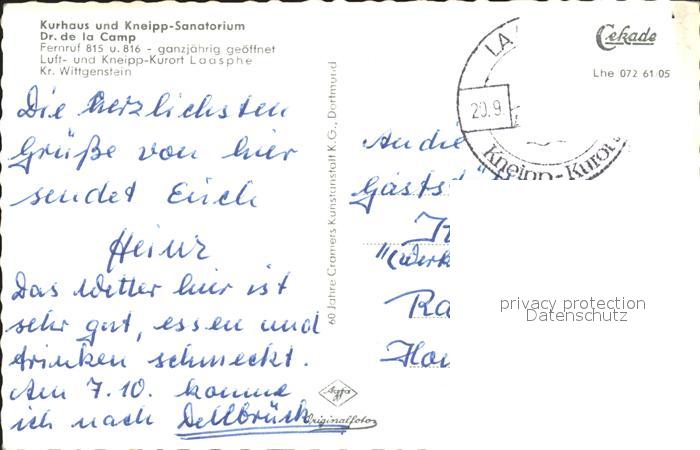 Kurhaus und Kneipp-Sanatorium
Dr. de la Camp
Fernruf 815 u. 816 - ganzjährig geöffnet
Luft- und Kneipp-Kurort Laasphe
Kr. Wittgenstein
Die herzlichsten
Grüße von hier
sendet Euch
Heinz
Das Wetter hier ist
sehr gut, essen und
trinken schmeckt.
Am 7.10. komme
ich nach Dellbrück
60 Jahre Cramers Kunstanstalt K.G., Dortmund
Agfa
Originalfoto
LA
20.9.
Kneipp-Kurort
Cekade
Lhe 072 61/05
An die
Gastst
"(Werk
Ra
privacy protection
Datenschutz